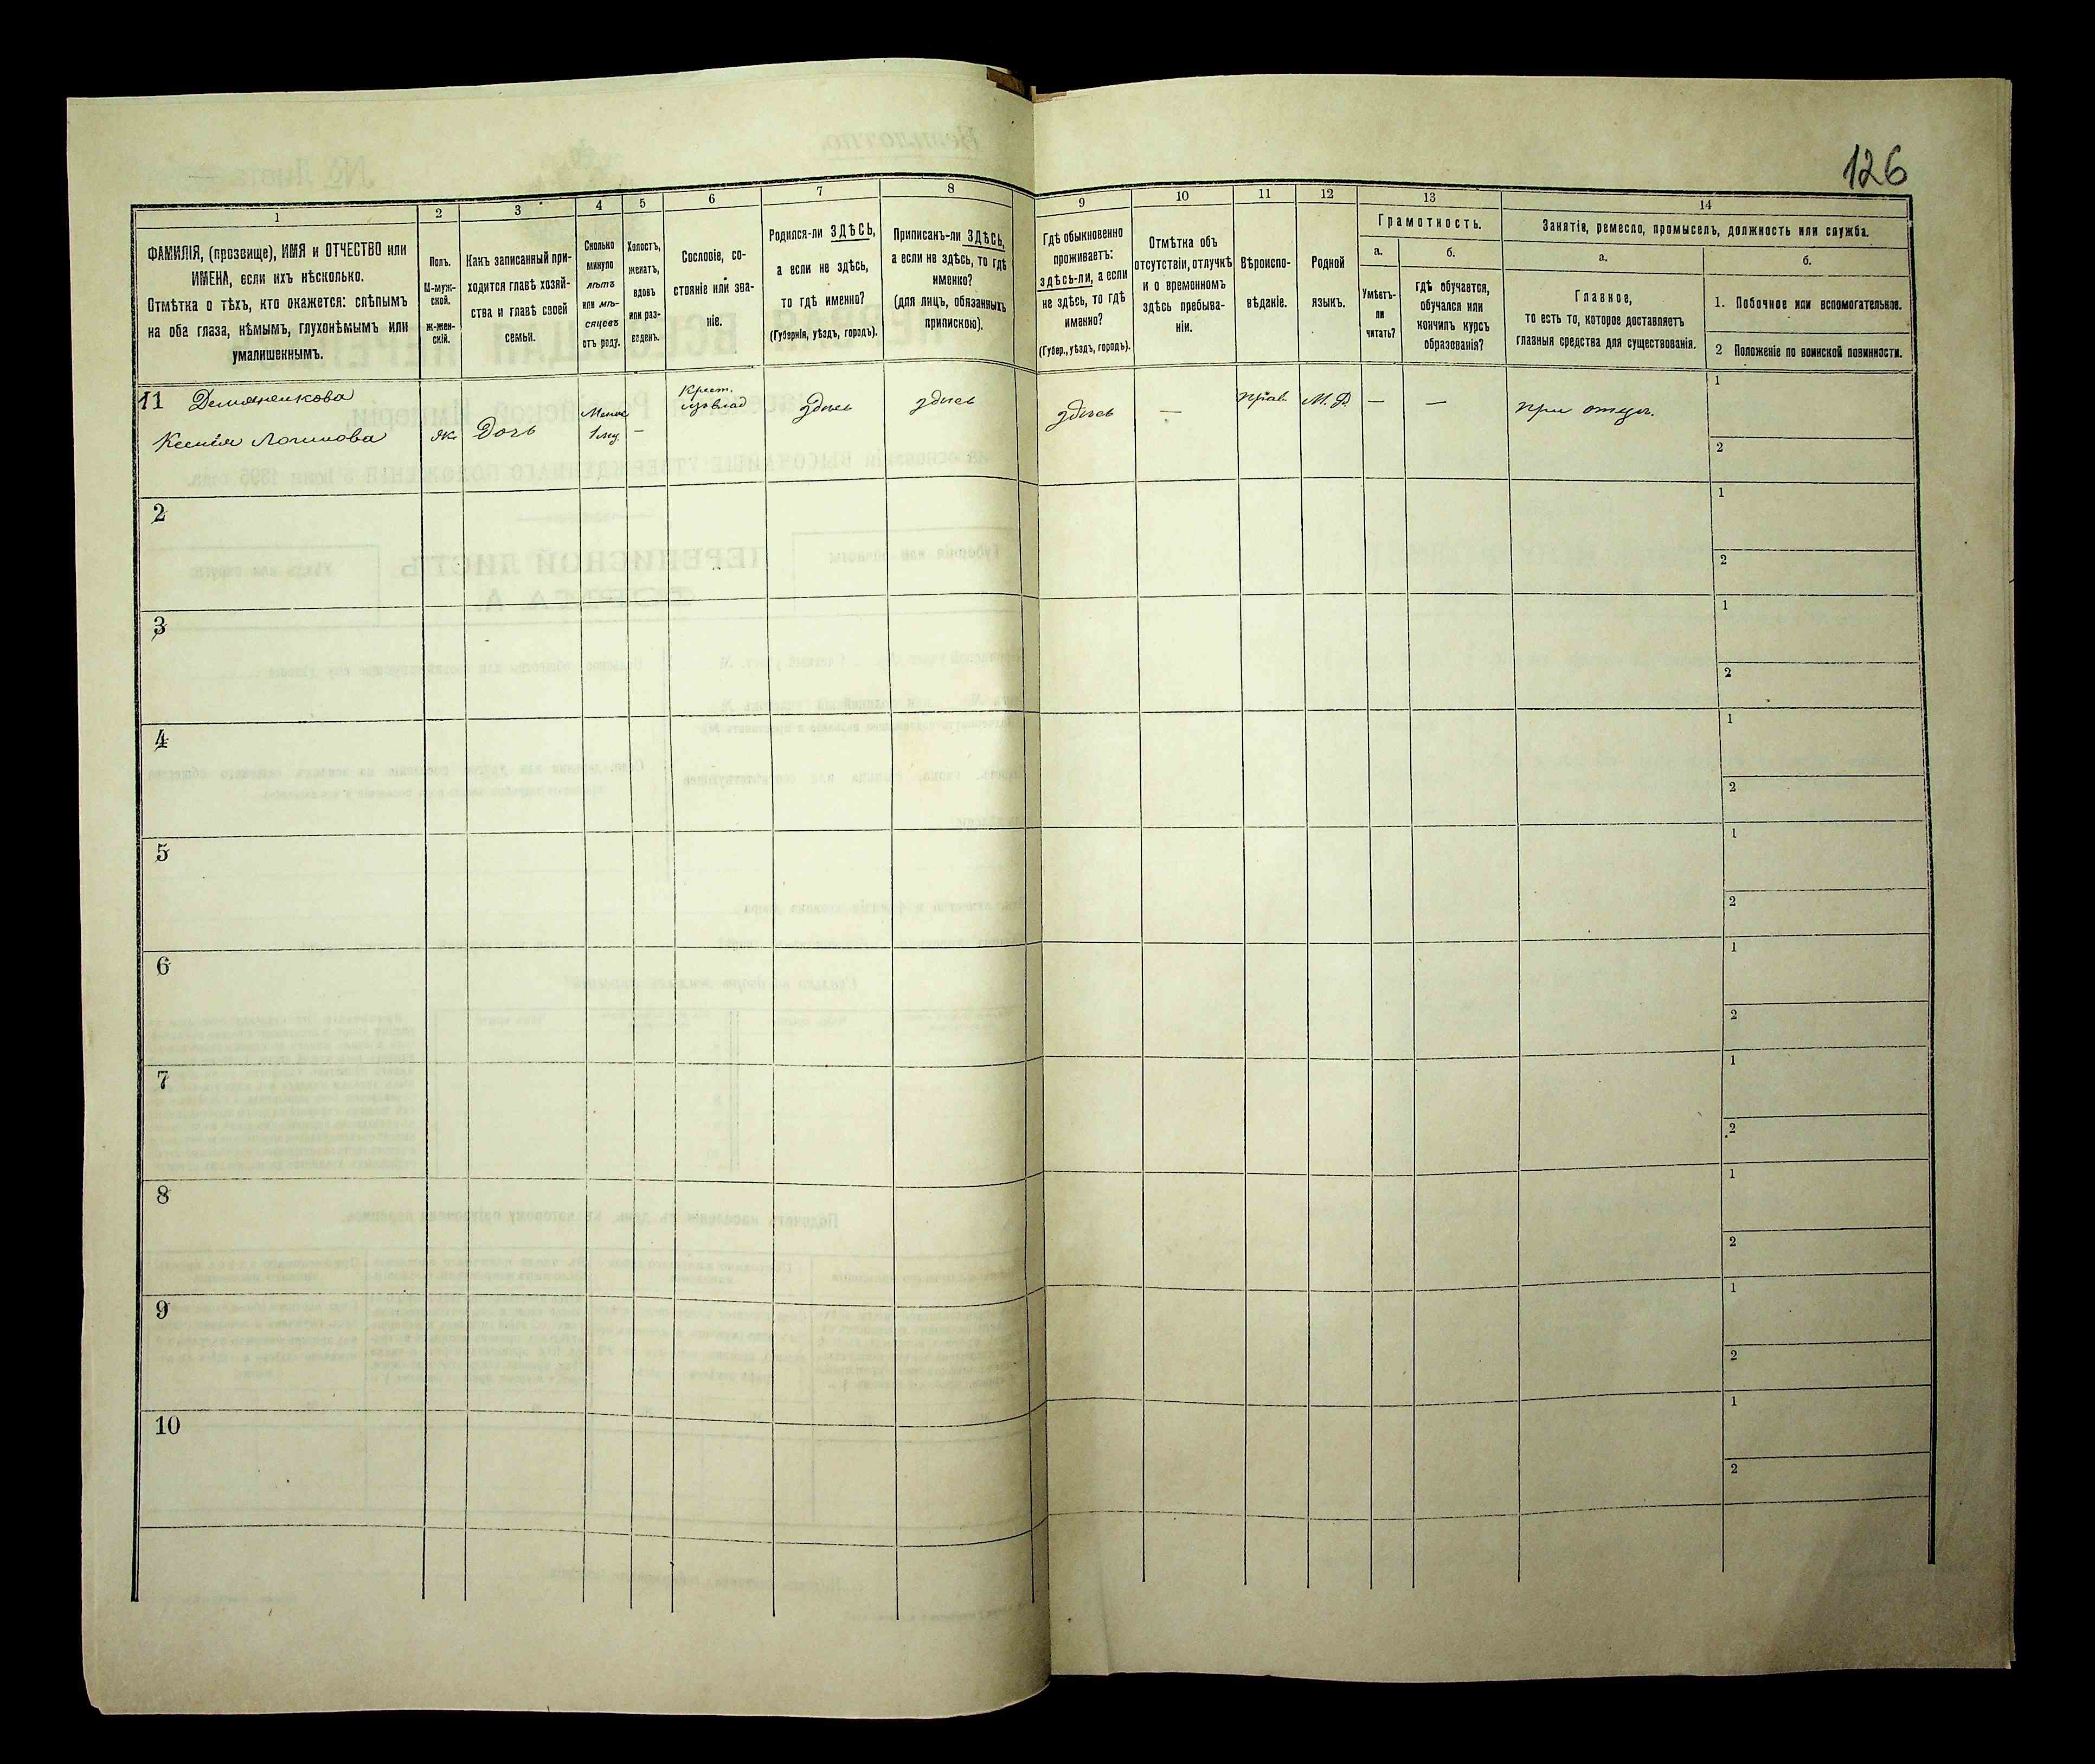 126
1
2
3
4
5
6
7
8
9
10
11
12
13
14
ФАМИЛІЯ, (прозвище), ИМЯ и ОТЧЕСТВО или
ИМЕНА, если ихъ нѣсколько.
Отмѣтка о тѣхъ, кто окажется: слѣпымъ
на оба глаза, нѣмымъ, глухонѣмымъ или
умалишеннымъ.
Полъ.
М-муж-
ской.
ж-жен-
скій.
Какъ записанный при-
ходится главѣ хозяй-
ства и главѣ своей
семьи.
Сколько
минуло
лѣтъ
или мѣ-
сяцевъ
отъ роду.
Холостъ,
женатъ,
вдовъ
или раз-
веденъ.
Сословіе, со-
стояніе или зва-
ніе.
Родился-ли ЗДѢСЬ,
а если не здѣсь,
то гдѣ именно?
(Губернія, уѣздъ, городъ).
Приписанъ-ли ЗДѢСЬ,
а если не здѣсь, то гдѣ
именно?
(для лицъ, обязанныхъ
припискою).
Гдѣ обыкновенно
проживаетъ:
здѣсь-ли, а если
не здѣсь, то гдѣ
именно?
(Губер., уѣздъ, городъ).
Отмѣтка объ
отсутствіи, отлучкѣ
и о временномъ
здѣсь пребыва-
ніи.
Вѣроиспо-
вѣданіе.
Родной
языкъ.
Грамотность.
а.
Умѣетъ-
ли
читать?
б.
гдѣ обучается,
обучался или
кончилъ курсъ
образованія?
Занятіе, ремесло, промыселъ, должность или служба.
а.
Главное,
то есть то, которое доставляетъ
главныя средства для существованія.
б.
1. Побочное или вспомогательное.
2 Положеніе по воинской повинности.
11 Демяненкова
Ксенія Логинова
ж
Дочь
Менѣе
1 мѣ
—
Крест.
из влад
здѣсь
здѣсь
здѣсь
—
прав
М. Р.
—
—
при отцѣ.
1
2
2
1
2
3
1
2
4
1
2
5
1
2
6
1
2
7
1
2
8
1
2
9
1
2
10
1
2